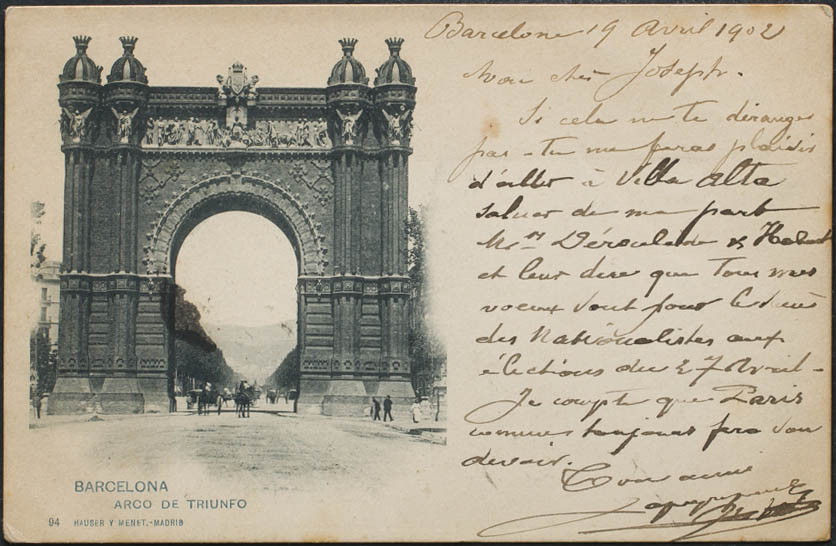 BARCELONA
ARCO DE TRIUNFO
94 HAUSER Y MENET.-MADRID
Barcelone 19 Avril 1902
Mon cher Joseph.
Si cela ne te déranges
pas - tu me feras plaisir
d'aller à Villa Alta
saluer de ma part
Mrs Déroulède &
et leur dire que tous mes
voeux vont pour le succès
des Nationalistes aux
élections du 27 Avril -
Je compte que Paris
comme toujours fera son
devoir.
Ton ami